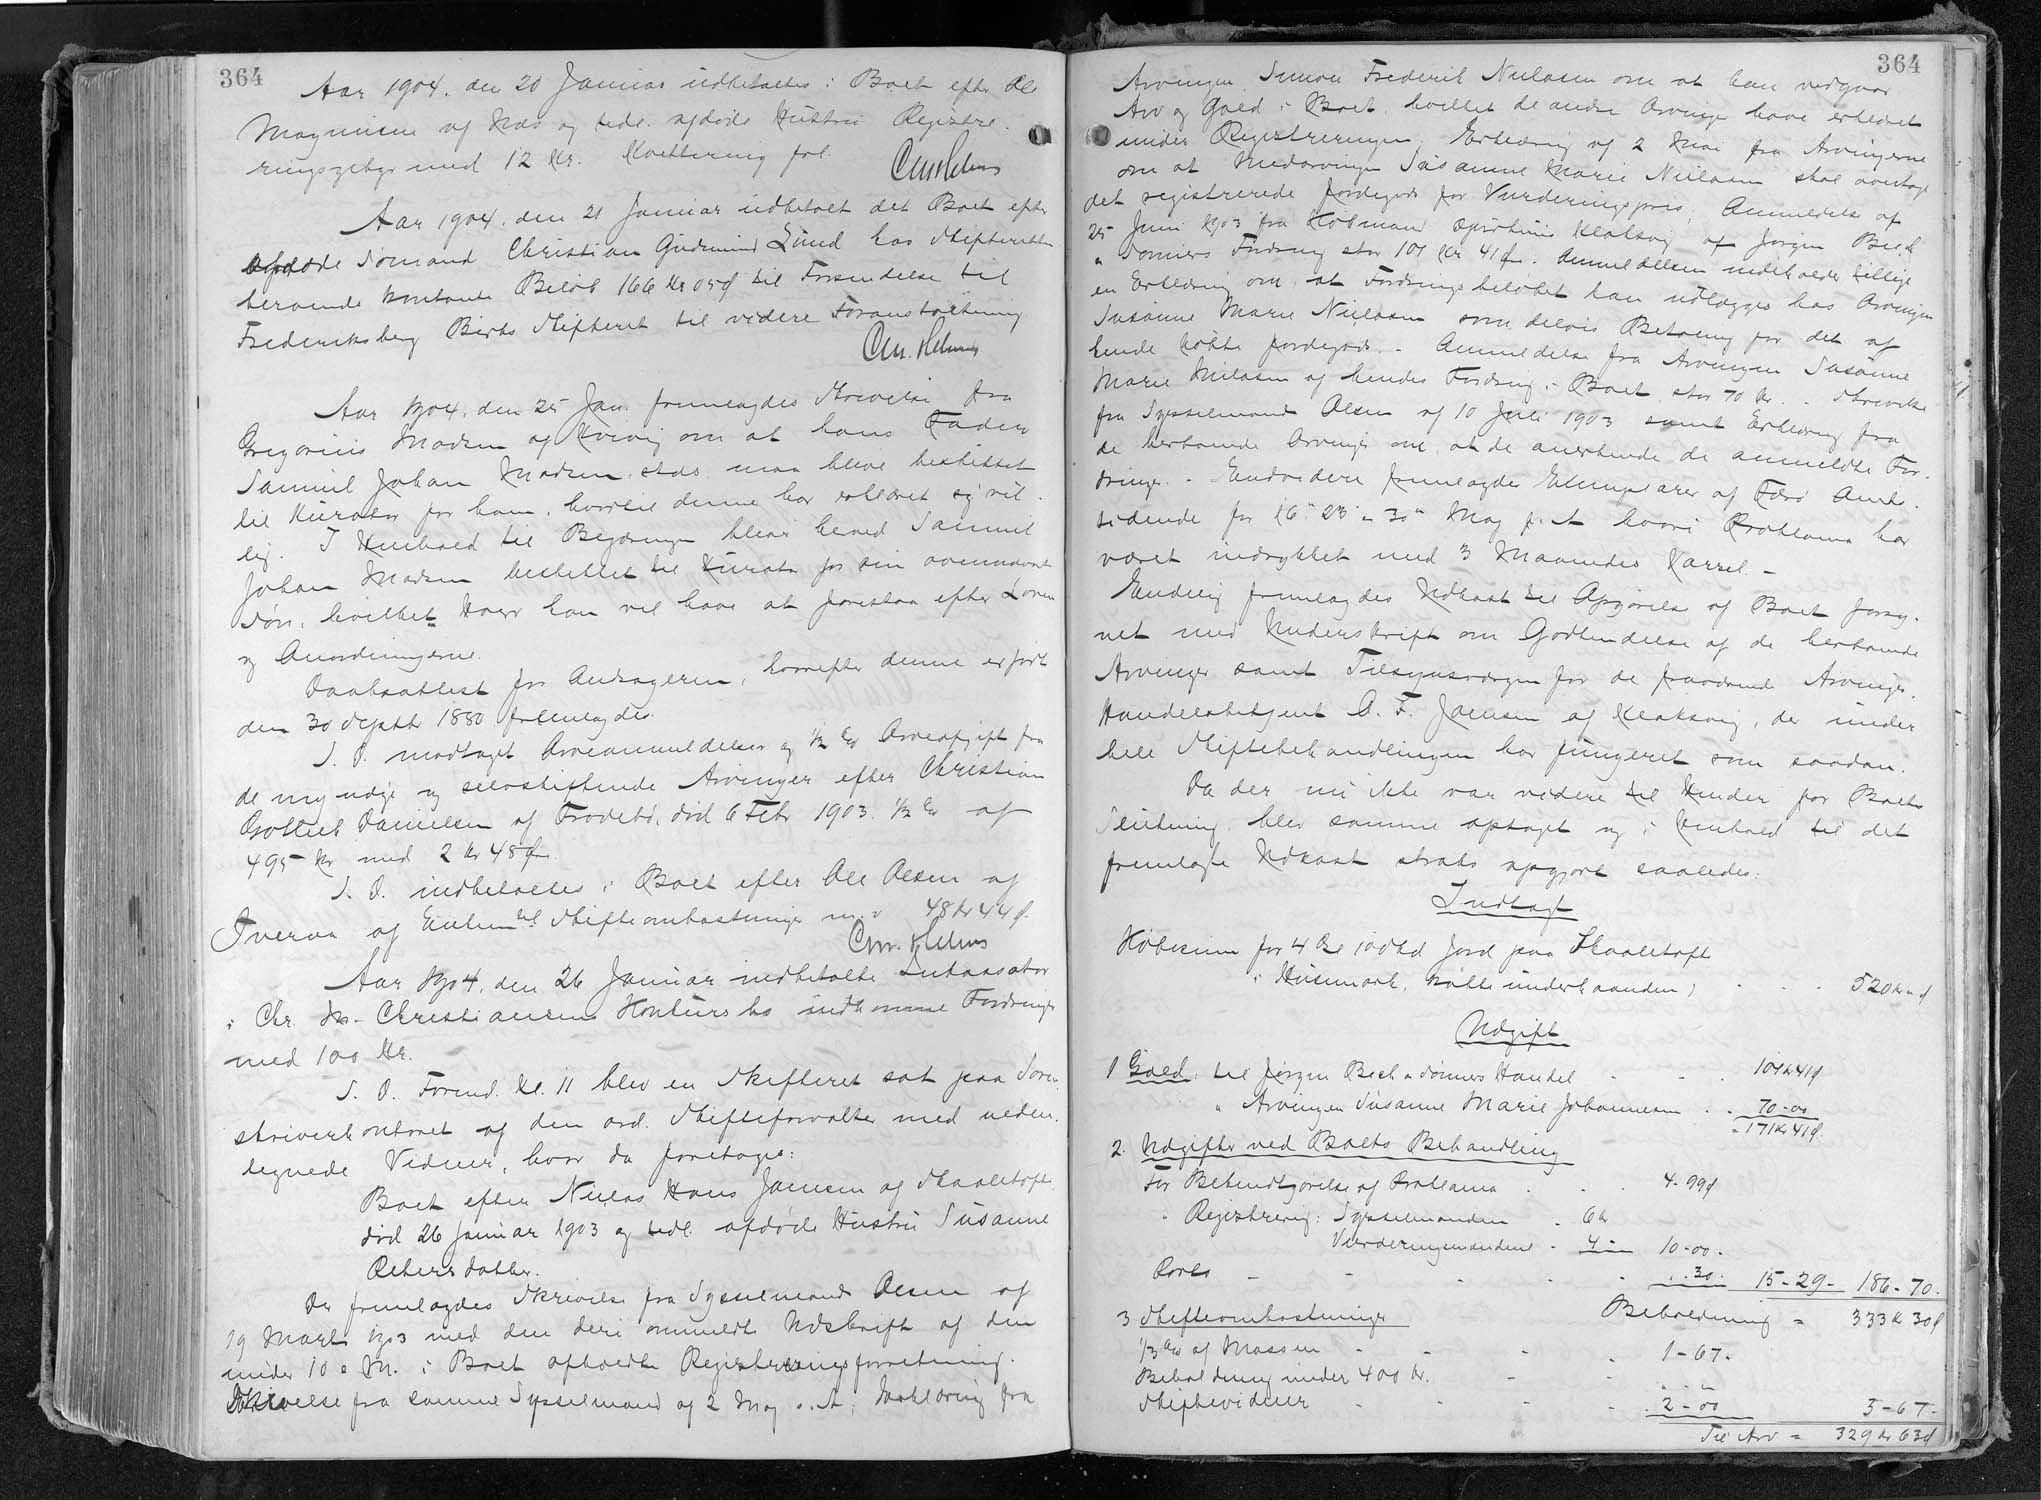 364
Aar 1904, den 20 Januar indbetaltes i Boet efter Ole
Magnusen af Næs og tidl. afdøde Hustru Registre-
ringsgebyr med 12 Kr. Kvittering fol.
Aar 1904, den 21 Januar udbetalt det Boet efter
afdøde Sømand Christian Gudmund Lund hos Skifteretten
beroende kontante Beløb 166 Kr 05 Ø til Forsendelse til
Frederiksberg Birks Skifteret til videre Foranstaltning
Aar 1904, den 25 Jan. fremlagdes Skrivelse fra
Gregorius Madsen af Kvivig om at hans Fader
Samuel Johan Madsen sstds maa blive beskikket
til Kurator for ham, hvortil denne har erklæret sig vil-
lig. I Henhold til Begæringen bliver herved Samuel
Johan Madsen beskikket til Kurator for sin ovennævnte
Søn, hvilket Hverv han vil have at forestaa efter Loven
og Anordningerne.
Daabsattest for Andrageren, hvorefter denne er født
den 30 Septbr 1880 fremlagdes.
S. D. modtaget Arveanmeldelser og ½ % Arveafgift fra
de myndige og selvskiftende Arvinger efter Christian
Gottlieb Danielsen af Frodebø, død 6 Febr 1903. ½ % af
495 Kr med 2 Kr 48 Ø.
S. D. indbetaltes i Boet efter Ole Olsen af
Tveraa af Enken til Skifteomkostninger m. v. 48 Kr 44 Ø.
Aar 1904, den 26 Januar indbetalte Inkassator
i Chr. M. Christiansens Konkursbo indkomne Fordringer
med 100 Kr.
S. D. Formd. Kl. 11 blev en Skifteret sat paa Soren-
skriverkontoret af den ord. Skifteforvalter med neden-
tegnede Vidner, hvor da foretoges:
Boet efter Niclas Hans Joensen af Skaaletofte
død 26 Januar 1903 og tidl. afdøde Hustru Susanne
Petersdatter.
Der fremlagdes Skrivelse fra Sysselmand Olsen af
19 Marts 1903 med den deri ommeldte Udskrift af den
under 10 s. M. i Boet afholdte Registreringsforretning.
Skrivelse fra samme Sysselmand af 2 Maj s. A. Erklæring fra
364
Arvingen Simon Frederik Nielasen om at han vedgaar
Arv og Gæld i Boet, hvilket de andre Arvinger have erklæret
under Registreringen. Erklæring af 2 Mai fra Arvingerne
om at Medarvingen Susanne Marie Nielasen skal overtage
det registrerede Jordegods for Vurderingspris. Anmeldelse af
25 Juni 1903 fra Købmand Klaksvig af Jørgen Bech
" Sønners Fordring stor 101 Kr 41 Ø. Anmeldelsen indeholder tillige
en Erklæring om, at Fordringsbeløbet kan udlægges hos Arvingen
Susanne Marie Nielasen som delvis Betaling for det af
hende købte Jordegods. - Anmeldelse fra Arvingen Susanne
Marie Nielasen af hendes Fordring i Boet stor 70 Kr. - Skrivelse
fra Sysselmand Olsen af 10 Juli 1903 samt Erklæring fra
de herboende Arvinger om at de anerkende de anmeldte For-
dringer. - Endvidere fremlagdes Exemplarer af Færø Amts-
tidende for 16" 23" " 30" Maj f. A. hvori Proklama har
været indrykket med 3 Maaneders Varsel. -
Endelig fremlagdes Udkast til Opgørelse af Boet forsy-
net med Underskrift om Godkendelse af de herboende
Arvinger samt Tilsynsværgen for de fraværende Arvinger,
Handelsbetjent A. F. Joensen af Klaksvig, der under
hele Skiftebehandlingen har fungeret som saadan.
Da der nu ikke var videre til Hinder for Boets
Slutning, blev samme optaget og i Henhold til det
fremlagte Udkast straks opgjort saaledes:
Indtægt
Købesum for 4 Gl 10 Skd Jord paa Skaaletofte
i Husemark, underhaanden) 520 Kr " Ø
Udgift
1 Gæld: til Jørgen Bech " Sønners Handel 101 Kr 41 Ø
" Arvingen Susanne Marie Johannesen 70 - 00
171 Kr 41 Ø.
2. Udgifter ved Boets Behandling
For Bekendtgørelse af Proklama 4 - 99 Ø
" Registrering: Sysselmanden 6 Kr
Vurderingsmændene 4 - 10 - 00 -
Porto .. 30. 15 - 29 - 186 - 70.
Beholdning = 333 Kr 30 Ø
3 Skifteomkostninger
⅓ % af Massen 1 - 67 -
Beholdning under 400 Kr. " - " -
Skiftevidner 2 - 00 3 - 67 -
Til Arv = 329 Kr 63 Ø